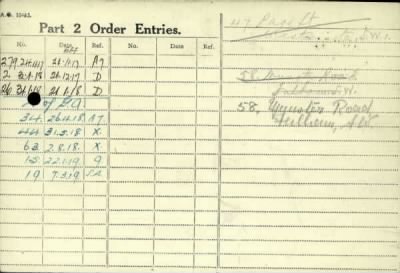 A.G. 10483.
Part 2 Order Entries.
No. Date. Ref. No. Date. Ref.
279 24.11.17 21.11.17 A7
2 3.1.18 21.12.17 D
26 31.1.18 D
34 26.4.18 A7
44 31.5.18 X
63 2.8.18 X
15 22.1.19 9
19 7.3.19
47 Page St
S.W.1.
58,
58, Munster Road
Fulham, S.W.